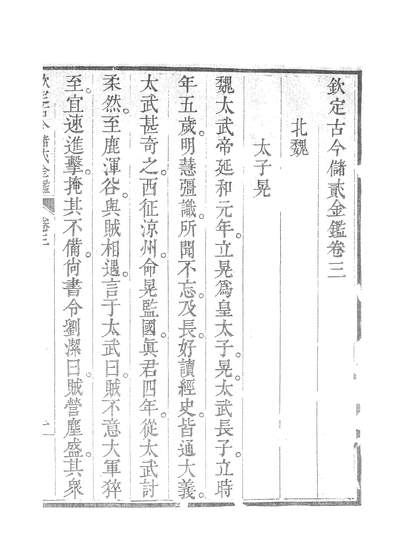 欽定古今儲貳金鑑卷三
北魏
太子晃
魏太武帝延和元年立晃爲皇太子晃太武長子立時
年五歲明慧彊識所聞不忘及長好讀經史皆通大義
太武甚奇之西征涼州命晃監國眞君四年從太武討
柔然至鹿渾谷與賊相遇言于太武曰賊不意大軍猝
至宜速進擊掩其不備尙書令劉潔曰賊營塵盛其衆
欽定古今儲貳金鑑 卷三